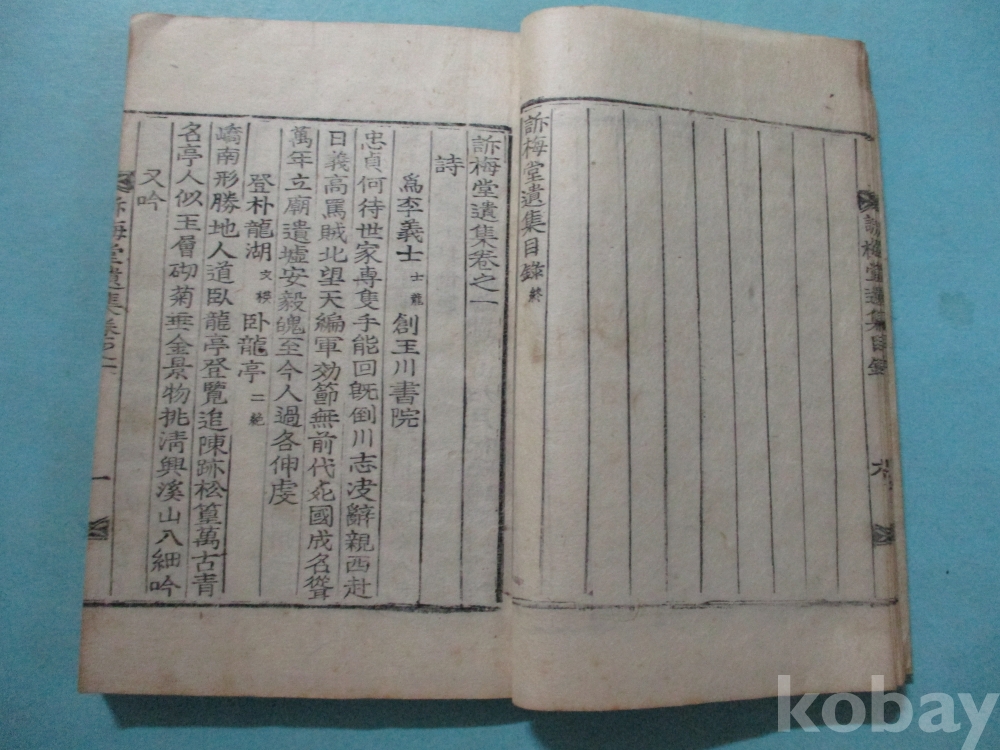 訴梅堂遺集目錄
六
訴梅堂遺集目錄 終
訴梅堂遺集卷之一
詩
為李義士 士龍 創玉川書院
忠貞何待世家專隻手能回旣倒川志决辭親西赴
日義高罵賊北望天編軍効節無前代死國成名聳
萬年立廟遺墟安毅魄至今人過各伸虔
登朴龍湖 文楧 卧龍亭 二絶
嶠南形勝地人道臥龍亭登覽追陳跡松篁萬古青
名亭人似玉層砌菊垂金景物挑淸興溪山入細吟
又吟
訴梅堂遺集卷之一
一
kobay